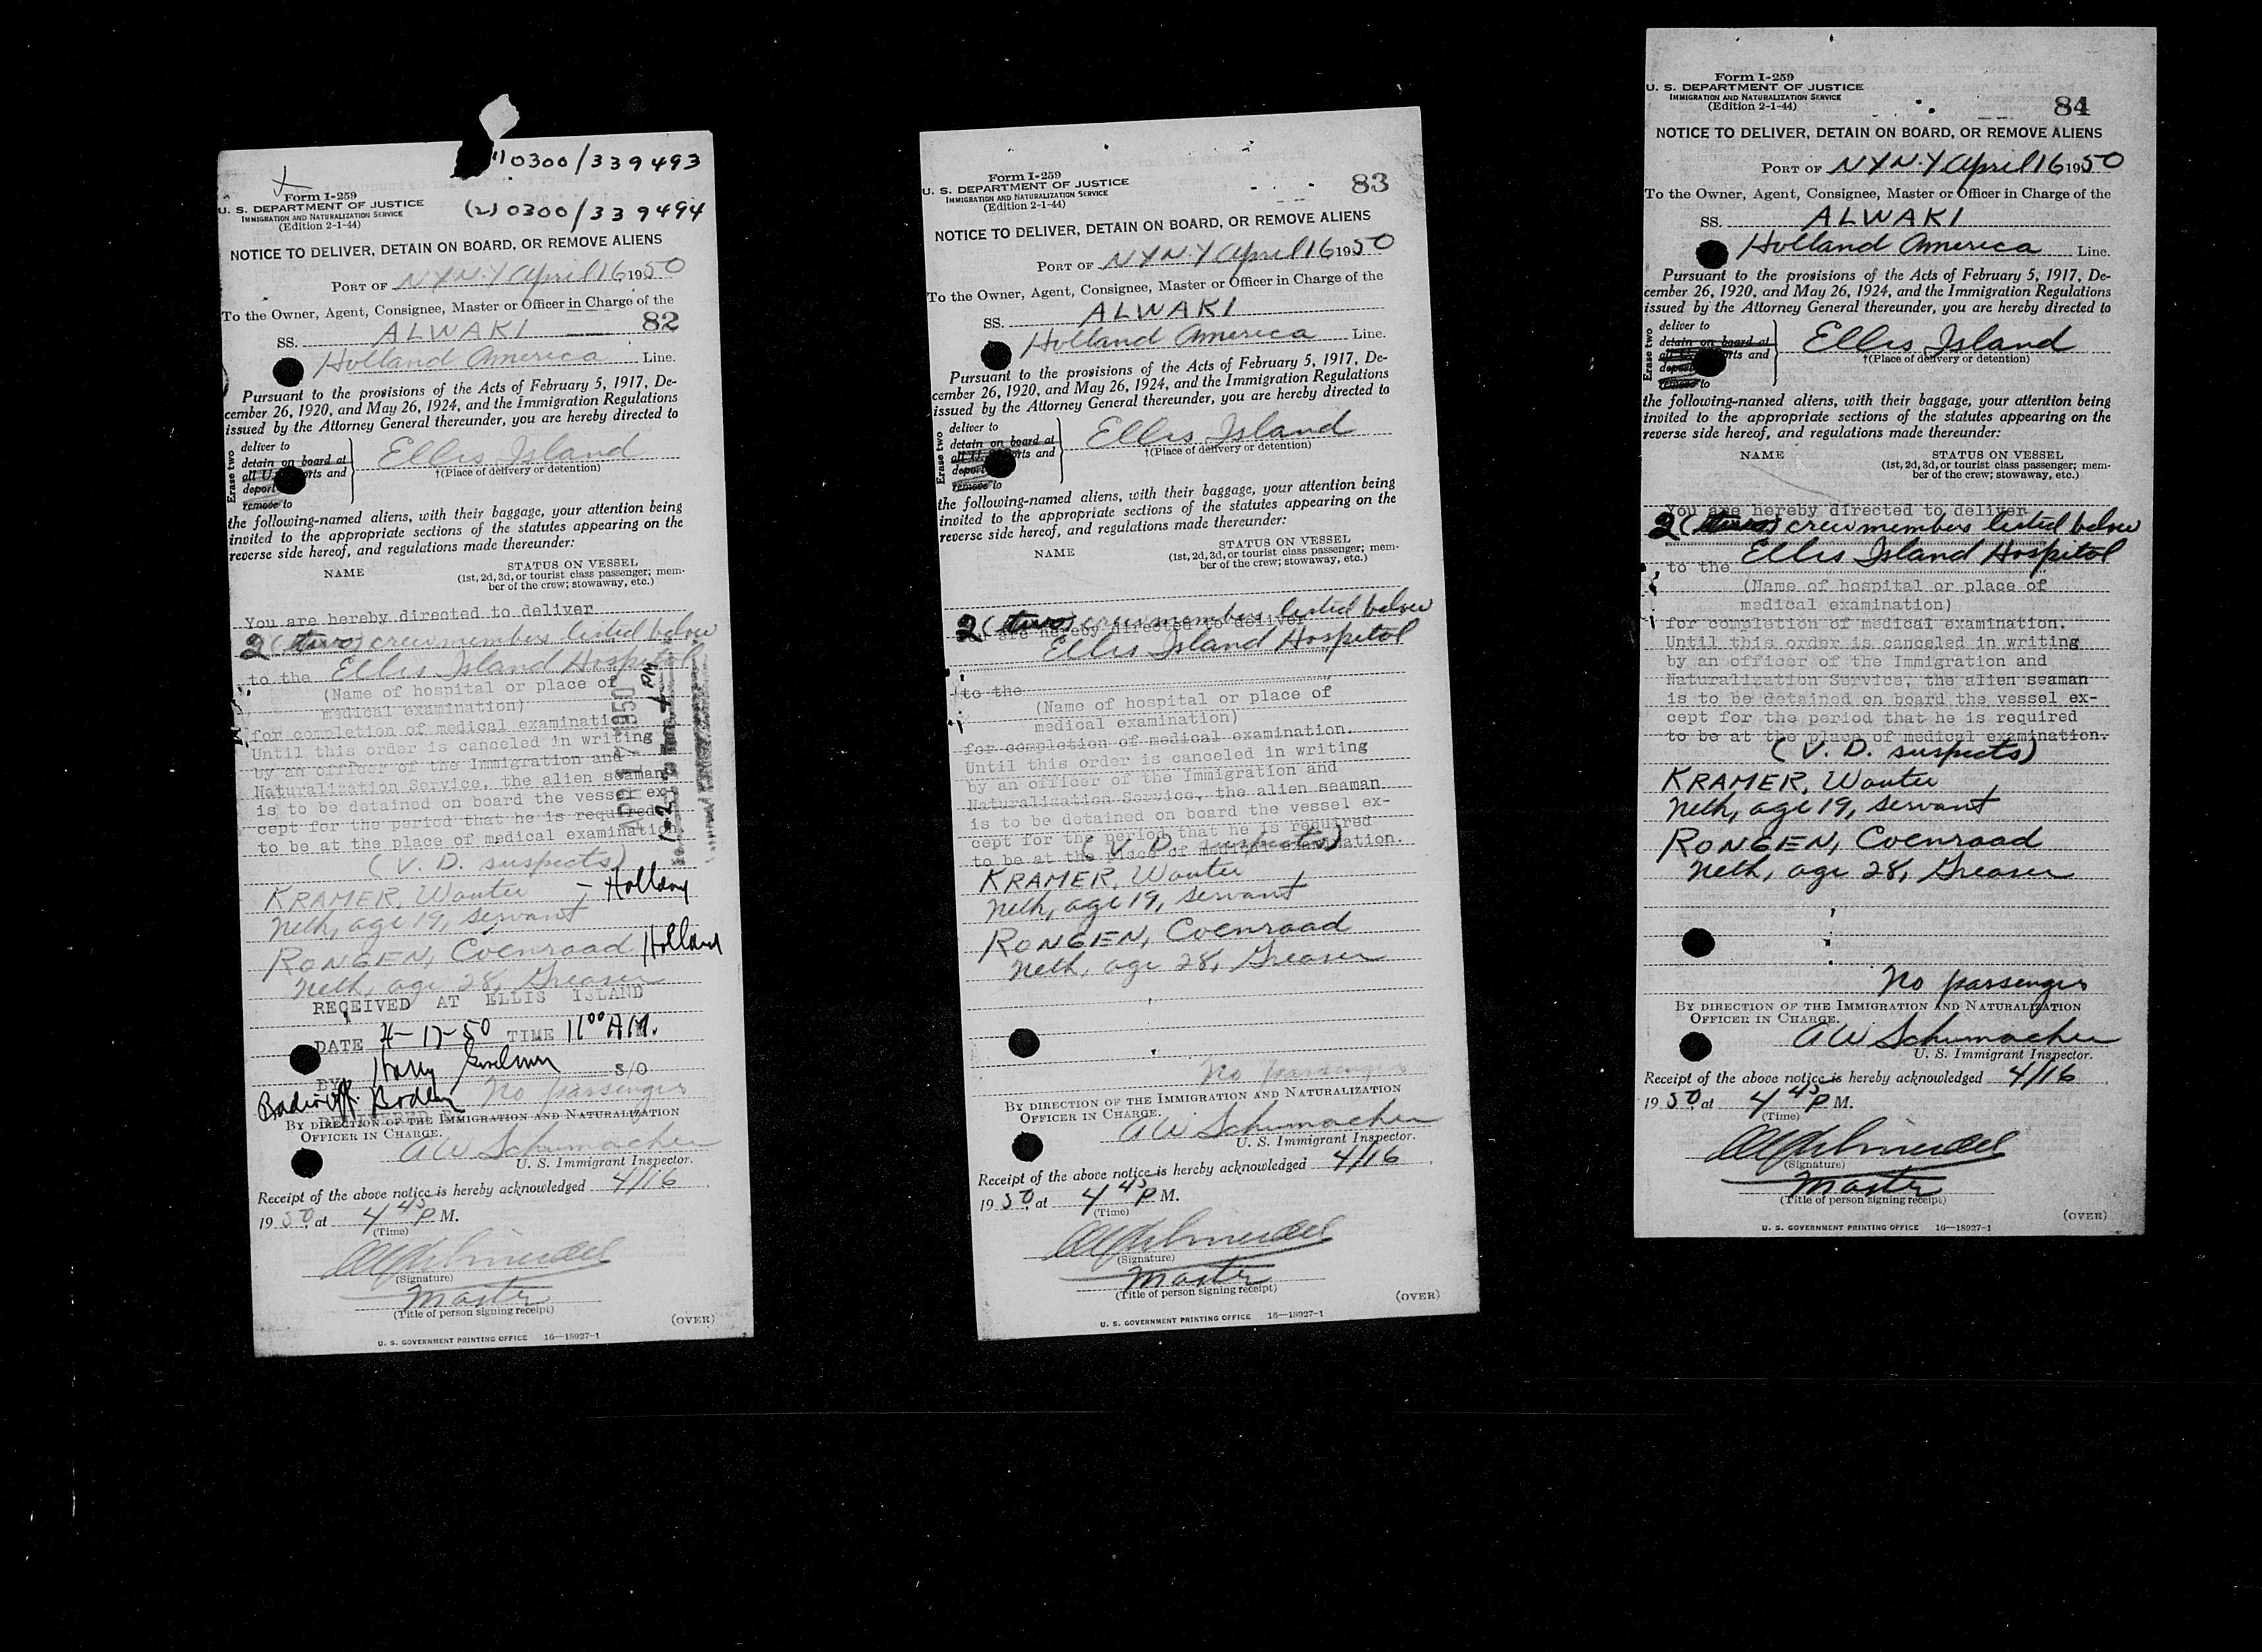 (1) 0300/339493
Form I-259
U. S. DEPARTMENT OF JUSTICE
IMMIGRATION AND NATURALIZATION SERVICE
(Edition 2-1-44)
(2) 0300/339494
NOTICE TO DELIVER, DETAIN ON BOARD, OR REMOVE ALIENS
PORT OF N Y N.Y April 16 1950
To the Owner, Agent, Consignee, Master or Officer in Charge of the
82
SS. ALWAKI
Holland America Line.
Pursuant to the provisions of the Acts of February 5, 1917, De-
cember 26, 1920, and May 26, 1924, and the Immigration Regulations
issued by the Attorney General thereunder, you are hereby directed to
Erase two
deliver to
detain on board at
all U. rts and
deport
remove to
Ellis Island
†(Place of delivery or detention)
the following-named aliens, with their baggage, your attention being
invited to the appropriate sections of the statutes appearing on the
reverse side hereof, and regulations made thereunder:
NAME
STATUS ON VESSEL
(1st, 2d, 3d, or tourist class passenger; mem-
ber of the crew; stowaway, etc.)
You are hereby directed to deliver
2 (two) crewmembers listed below
to the Ellis Island Hospital
(Name of hospital or place of
medical examination)
for completion of medical examination
Until this order is canceled in writing
by an officer of the Immigration and
Naturalization Service, the alien seaman
is to be detained on board the vessel ex-
cept for the period that he is required
to be at the place of medical examination
APR 17 1950
(V. D. suspects)
KRAMER, Wouter - Holland
Neth, age 19, servant
RONGEN, Coenraad Holland
Neth, age 28, Greaser
RECEIVED AT ELLIS ISLAND
DATE 4-17-50 TIME 11 00 AM.
BY Harry S/O
No passengers
BY DIRECTION OF THE IMMIGRATION AND NATURALIZATION
OFFICER IN CHARGE.
A W Schumacher
U. S. Immigrant Inspector.
Receipt of the above notice is hereby acknowledged 4/16
1950, at 4 45 P M.
(Time)
(Signature)
Master
(Title of person signing receipt)
(OVER)
U. S. GOVERNMENT PRINTING OFFICE 16—18927-1
Form I-259
U. S. DEPARTMENT OF JUSTICE
IMMIGRATION AND NATURALIZATION SERVICE
(Edition 2-1-44)
83
NOTICE TO DELIVER, DETAIN ON BOARD, OR REMOVE ALIENS
PORT OF N Y N.Y April 16 1950
To the Owner, Agent, Consignee, Master or Officer in Charge of the
SS. ALWAKI
Holland America Line.
Pursuant to the provisions of the Acts of February 5, 1917, De-
cember 26, 1920, and May 26, 1924, and the Immigration Regulations
issued by the Attorney General thereunder, you are hereby directed to
Erase two
deliver to
detain on board at
all U. rts and
deport
remove to
Ellis Island
†(Place of delivery or detention)
the following-named aliens, with their baggage, your attention being
invited to the appropriate sections of the statutes appearing on the
reverse side hereof, and regulations made thereunder:
NAME
STATUS ON VESSEL
(1st, 2d, 3d, or tourist class passenger; mem-
ber of the crew; stowaway, etc.)
2 (two) crewmembers listed below
are hereby directed to deliver
Ellis Island Hospital
to the
(Name of hospital or place of
medical examination)
for completion of medical examination.
Until this order is canceled in writing
by an officer of the Immigration and
Naturalization Service, the alien seaman
is to be detained on board the vessel ex-
cept for the period that he is required
to be at the place of medical examination.
(V. D. suspects)
KRAMER, Wouter
Neth, age 19, servant
RONGEN, Coenraad
Neth, age 28, Greaser
No passengers
BY DIRECTION OF THE IMMIGRATION AND NATURALIZATION
OFFICER IN CHARGE.
A W Schumacher
U. S. Immigrant Inspector.
Receipt of the above notice is hereby acknowledged 4/16
1950, at 4 45 P M.
(Time)
(Signature)
Master
(Title of person signing receipt)
(OVER)
U. S. GOVERNMENT PRINTING OFFICE 16—18927-1
Form I-259
U. S. DEPARTMENT OF JUSTICE
IMMIGRATION AND NATURALIZATION SERVICE
(Edition 2-1-44)
84
NOTICE TO DELIVER, DETAIN ON BOARD, OR REMOVE ALIENS
PORT OF N Y N.Y April 16 1950
To the Owner, Agent, Consignee, Master or Officer in Charge of the
SS. ALWAKI
Holland America Line.
Pursuant to the provisions of the Acts of February 5, 1917, De-
cember 26, 1920, and May 26, 1924, and the Immigration Regulations
issued by the Attorney General thereunder, you are hereby directed to
Erase two
deliver to
detain on board at
all U. rts and
deport
remove to
Ellis Island
†(Place of delivery or detention)
the following-named aliens, with their baggage, your attention being
invited to the appropriate sections of the statutes appearing on the
reverse side hereof, and regulations made thereunder:
NAME
STATUS ON VESSEL
(1st, 2d, 3d, or tourist class passenger; mem-
ber of the crew; stowaway, etc.)
You are hereby directed to deliver
2 (two) crewmembers listed below
to the Ellis Island Hospital
(Name of hospital or place of
medical examination)
for completion of medical examination.
Until this order is canceled in writing
by an officer of the Immigration and
Naturalization Service, the alien seaman
is to be detained on board the vessel ex-
cept for the period that he is required
to be at the place of medical examination.
(V. D. suspects)
KRAMER, Wouter
Neth, age 19, servant
RONGEN, Coenraad
Neth, age 28, Greaser
No passengers
BY DIRECTION OF THE IMMIGRATION AND NATURALIZATION
OFFICER IN CHARGE.
A W Schumacher
U. S. Immigrant Inspector.
Receipt of the above notice is hereby acknowledged 4/16
1950, at 4 45 P M.
(Time)
(Signature)
Master
(Title of person signing receipt)
(OVER)
U. S. GOVERNMENT PRINTING OFFICE 16—18927-1